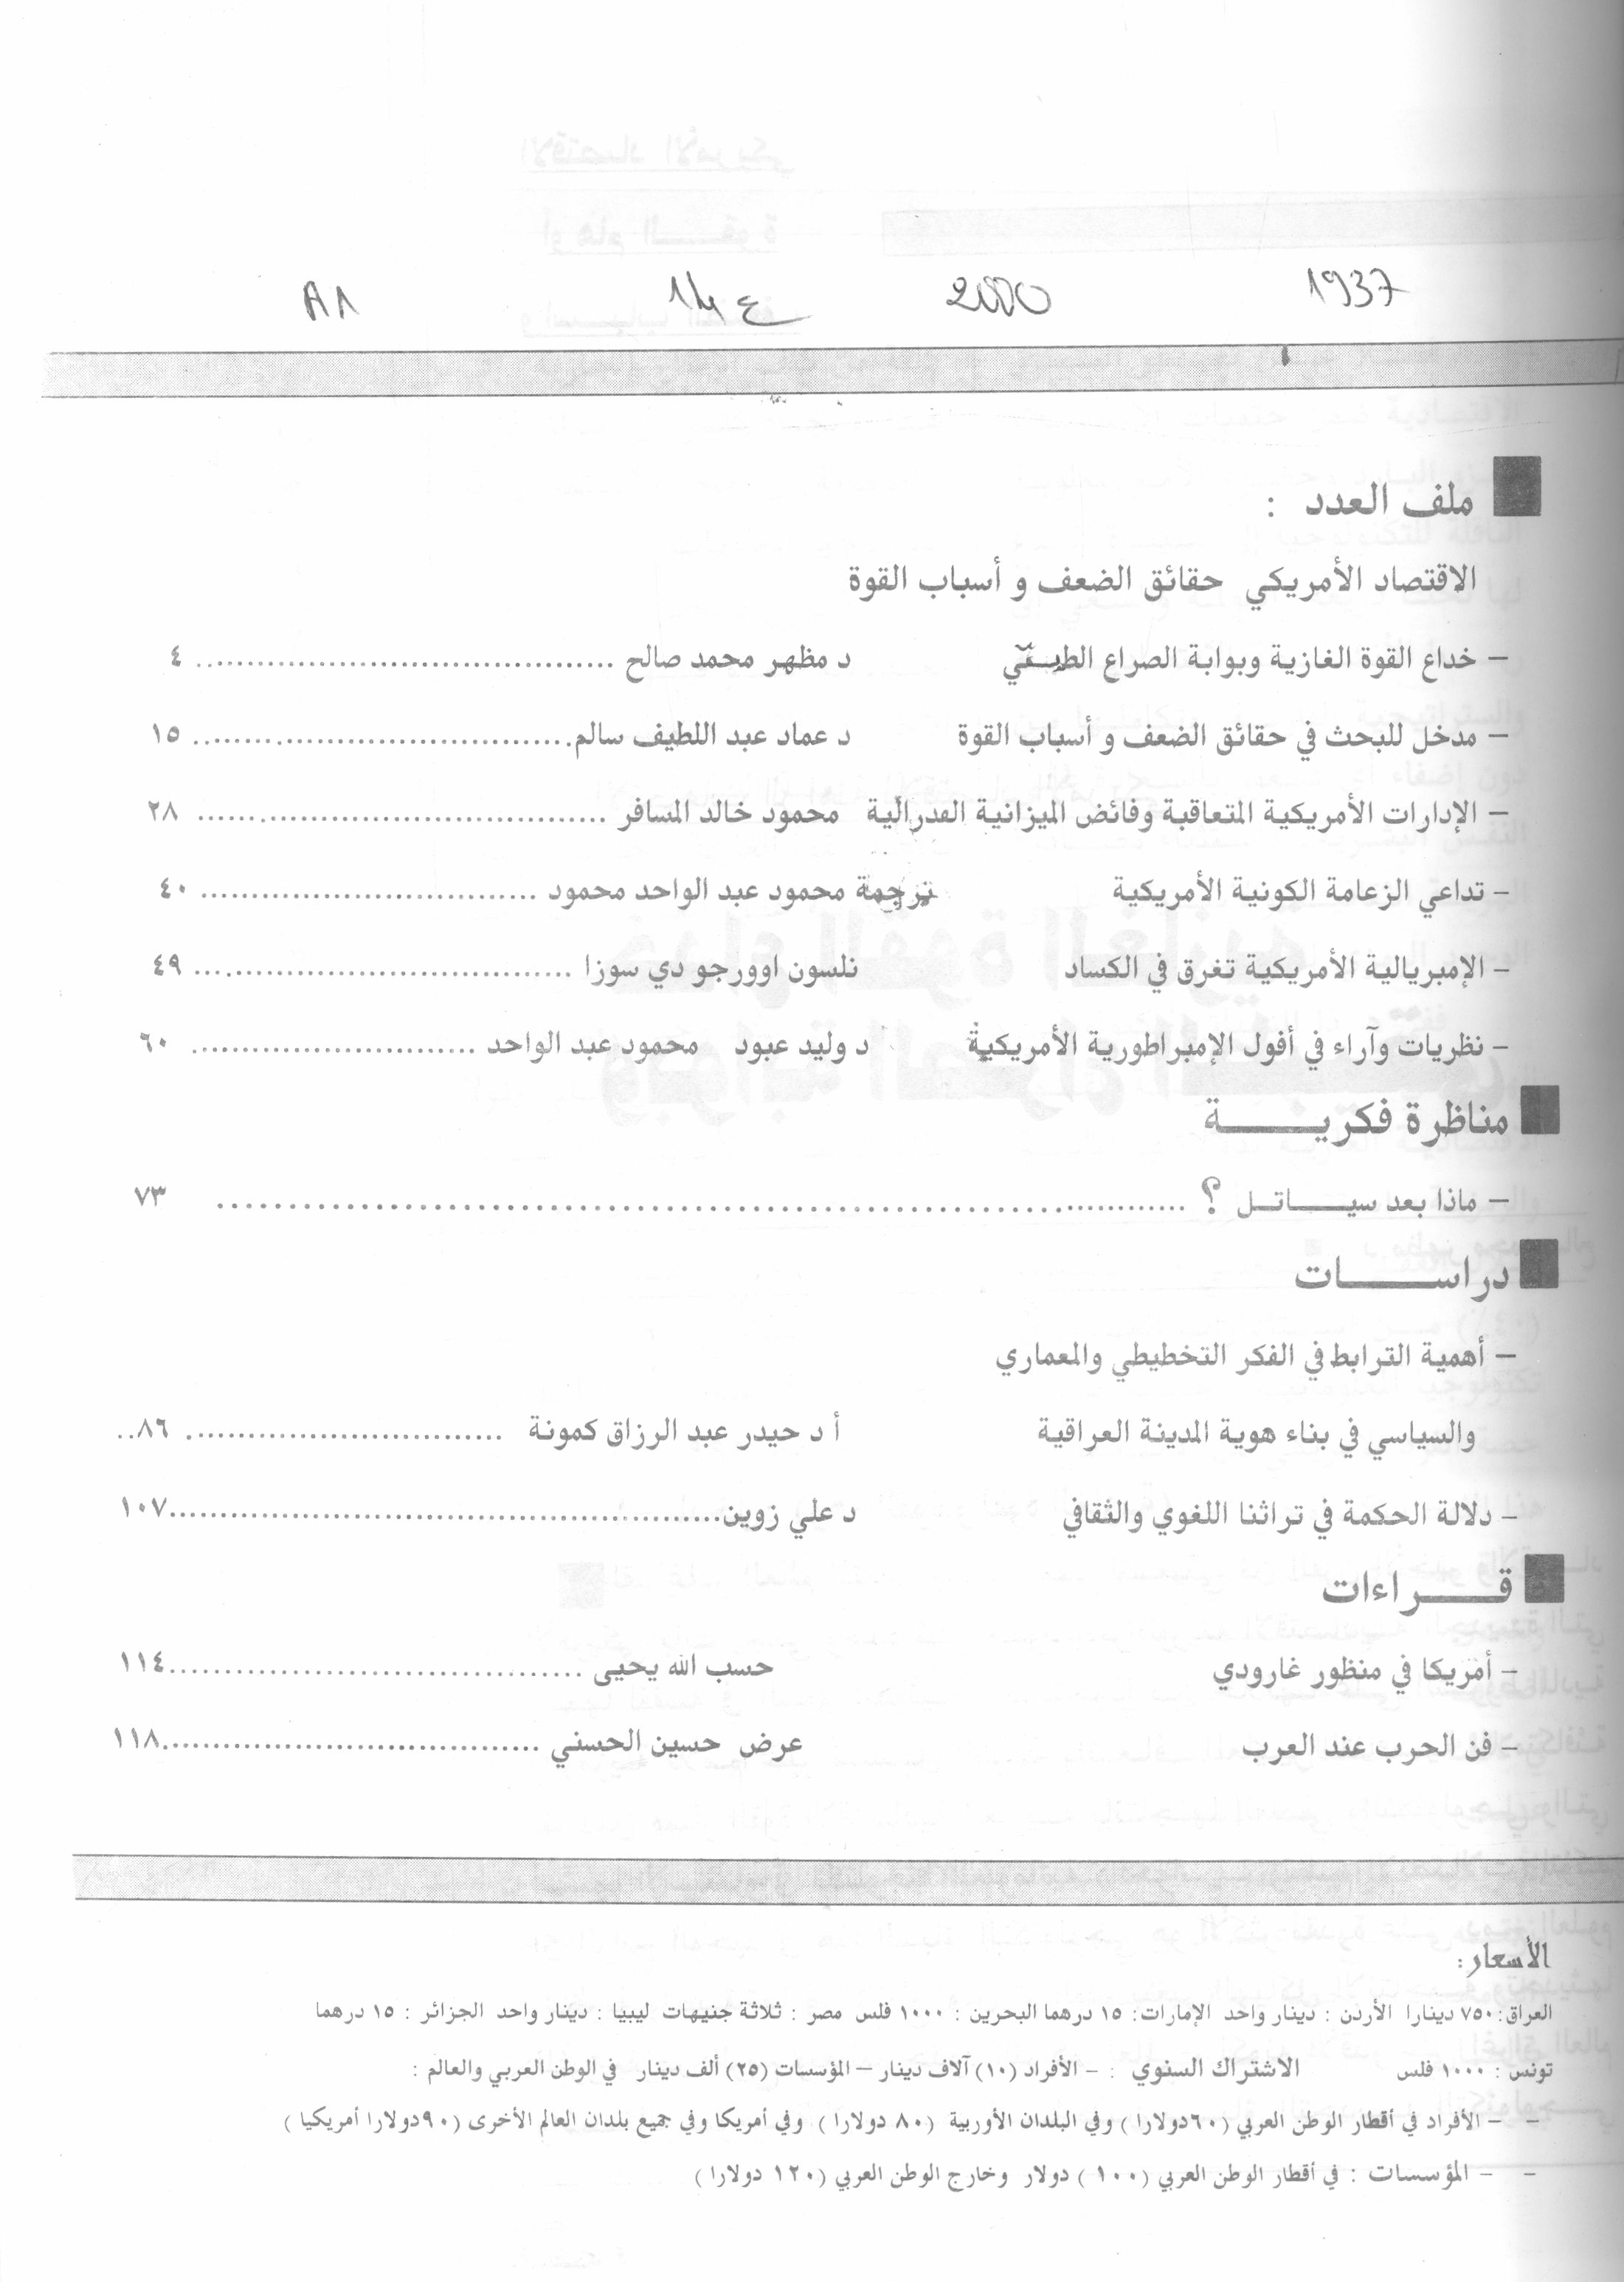 1937 2000
ملف العدد :
الاقتصاد الأمريكي حقائق الضعف و أسباب القوة
– خداع القوة الغازية وبوابة الصراع د مظهر محمد صالح ........................................ ٤
– مدخل للبحث في حقائق الضعف و أسباب القوة د عماد عبد اللطيف سالم........................................ ١٥
– الإدارات الأمريكية المتعاقبة وفائض الميزانية الفدرالية محمود خالد المسافر ........................................ ٢٨
– تداعي الزعامة الكونية الأمريكية ترجمة محمود عبد الواحد محمود ........................................ ٤٠
– الإمبريالية الأمريكية تغرق في الكساد نلسون اوورجو دي سوزا ........................................ ٤٩
– نظريات وآراء في أفول الإمبراطورية الأمريكية د وليد عبود محمود عبد الواحد ................................... ٦٠
مناظرة فكريـــــــة
– ماذا بعد سيـــــاتـل ؟ ........................................................................ ٧٣
دراســــــــات
– أهمية الترابط في الفكر التخطيطي والمعماري
والسياسي في بناء هوية المدينة العراقية أ د حيدر عبد الرزاق كمونة ...................................... ٨٦..
– دلالة الحكمة في تراثنا اللغوي والثقافي د علي زوين........................................................١٠٧
قـــــــراءات
– أمريكا في منظور غارودي حسب الله يحيى ...........................................١١٤
– فن الحرب عند العرب عرض حسين الحسني ...........................................١١٨
الأسعار:
العراق: ٧٥٠ دينارا الأردن : دينار واحد الإمارات: ١٥ درهما البحرين : ١٠٠٠ فلس مصر : ثلاثة جنيهات ليبيا : دينار واحد الجزائر : ١٥ درهما
تونس : ١٠٠٠ فلس الاشتراك السنوي : – الأفراد (١٠) آلاف دينار – المؤسسات (٢٥) ألف دينار في الوطن العربي والعالم :
– – الأفراد في أقطار الوطن العربي (٦٠دولارا ) وفي البلدان الأوربية (٨٠ دولارا ) وفي أمريكا وفي جميع بلدان العالم الأخرى (٩٠دولارا أمريكيا )
– – المؤسسات : في أقطار الوطن العربي (١٠٠ ) دولار وخارج الوطن العربي (١٢٠ دولارا )